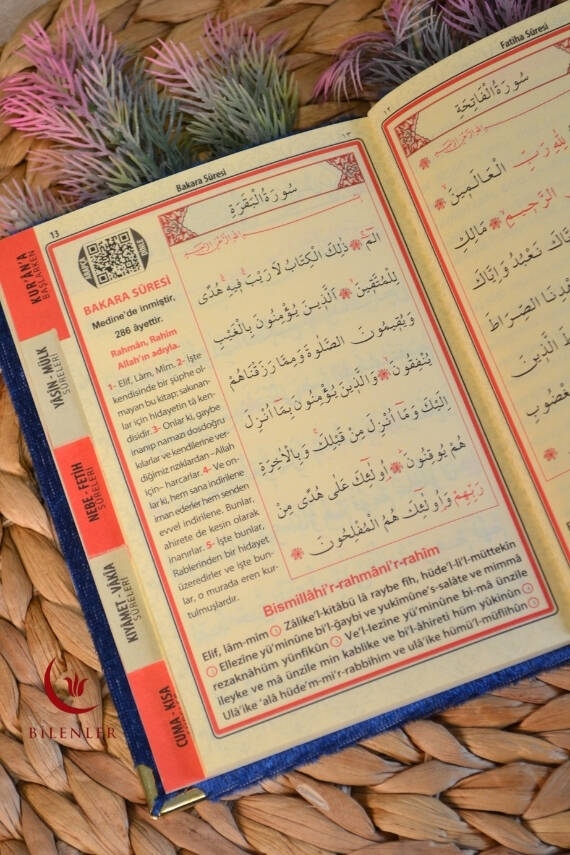 13
Bakara Sûresi
١٣
سُورَةُ الْبَقَرَةِ
BAKARA SÛRESİ
Medine'de inmiştir,
286 âyettir.
Rahmân, Rahîm
Allah'ın adıyla.
1- Elif, Lâm, Mîm. 2- İşte
kendisinde bir şüphe ol-
mayan bu kitap; sakınan-
lar için hidayetin tâ ken-
disidir. 3- Onlar ki, gaybe
inanıp namazı dosdoğru
kılarlar ve kendilerine ver-
diğimiz rızıklardan –Allah
için– harcarlar. 4- Ve on-
lar ki, hem sana indirilene
iman ederler hem senden
evvel indirilene. Bunlar,
ahirete de kesin olarak
inanırlar. 5- İşte bunlar,
Rablerinden bir hidayet
üzeredirler ve işte bun-
lar, o murada eren kur-
tulmuşlardır.
الٓمٓ ذٰلِكَ الْكِتَابُ لَا رَيْبَ فٖيهِ هُدًى
لِلْمُتَّقٖينَ اَلَّذٖينَ يُؤْمِنُونَ بِالْغَيْبِ
وَيُقٖيمُونَ الصَّلٰوةَ وَمِمَّا رَزَقْنَاهُمْ
يُنْفِقُونَ وَالَّذٖينَ يُؤْمِنُونَ بِمَٓا اُنْزِلَ
اِلَيْكَ وَمَٓا اُنْزِلَ مِنْ قَبْلِكَ وَبِالْاٰخِرَةِ
هُمْ يُوقِنُونَ اُو۬لٰٓئِكَ عَلٰى هُدًى مِنْ
رَبِّهِمْ وَاُو۬لٰٓئِكَ هُمُ الْمُفْلِحُونَ
Bismillâhi'r-rahmâni'r-rahîm
Elif, lâm-mîm Zâlike'l-kitâbü lâ raybe fîh, hüde'l-li'l-müttekîn
Ellezîne yü'minûne bi'l-ğaybi ve yukîmûne's-salâte ve mimmâ
rezaknâhüm yünfikûn Ve'l-lezîne yü'minûne bi-mâ ünzile
ileyke ve mâ ünzile min kablike ve bi'l-âhireti hüm yûkinûn
Ulâ'ike 'alâ hüde'm-mi'r-rabbihim ve ulâ'ike hümü'l-müflihûn
KUR'ÂN'A
BAŞLARKEN
YÂSÎN - MÜLK
SÛRELERİ
NEBE - FETİH
SÛRELERİ
KIYÂMET - VÂKIA
SÛRELERİ
CUMA - KISA
Fatiha Sûresi
١٢
سُورَةُ الْفَاتِحَةِ
لِلّٰهِ رَبِّ الْعَالَمٖينَ
الرَّحٖيمِ مَالِكِ
اِيَّاكَ نَعْبُدُ وَاِيَّاكَ
الصِّرَاطَ
الَّذٖينَ
BİLENLER